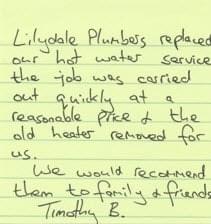 Lilydale Plumbers replaced
our hot water service
the job was carried
out quickly at a
reasonable price & the
old heater removed for
us.
We would recommend
them to family & friends
Timothy B.